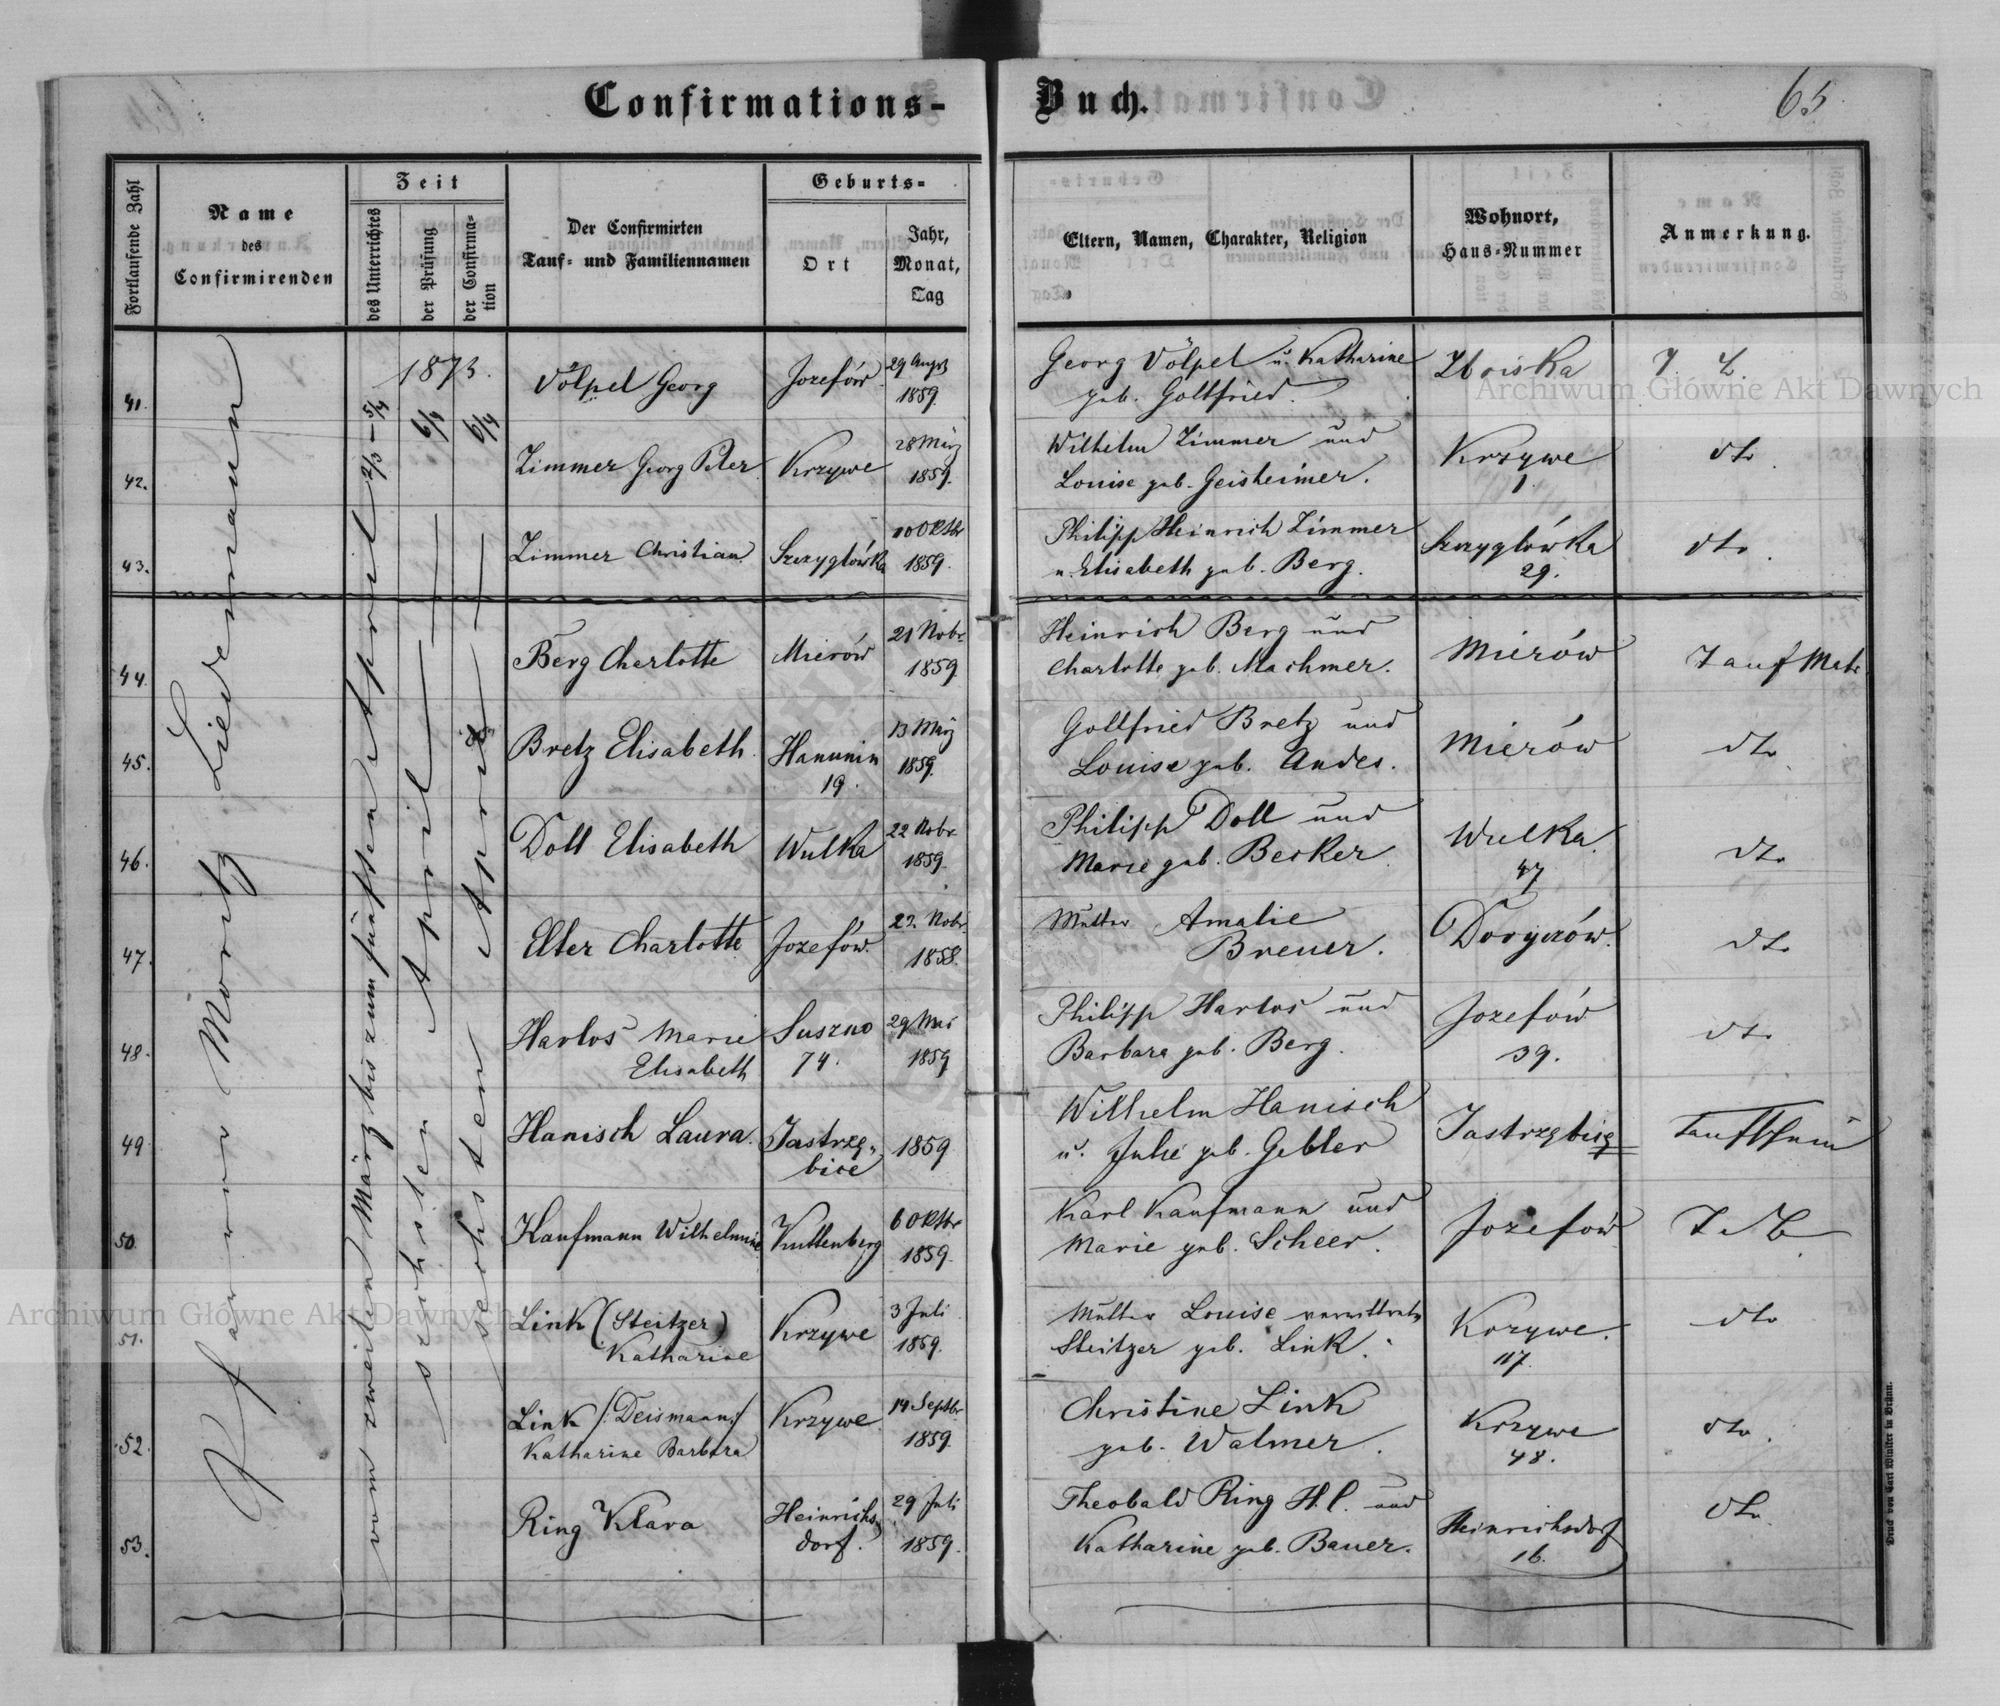 Confirmations-Buch.
65
Fortlaufende Zahl
Name
des
Confirmirenden
Zeit
des Unterrichtes
der Prüfung
der Confirma-
tion
Der Confirmirten
Tauf- und Familiennamen
Geburts-
Ort
Jahr,
Monat,
Tag
Eltern, Namen, Charakter, Religion
Wohnort,
Haus-Nummer
Anmerkung.
Pfarrer Moritz Liedemann
1873.
2/3 - 5/4
6/4
6/4
vom zweiten März bis zum fünften April
sechsten April
sechsten April
41.
Völpel Georg
Jozefów
29 Augst
1859.
Georg Völpel u. Katharine
geb. Gottfried.
Zboiska
T. Z.
42.
Zimmer Georg Peter
Krzywe
28 März
1859.
Wilhelm Zimmer und
Louise geb. Geisheimer.
Krzywe
1.
dto
43.
Zimmer Christian
Szczyglówka
10 Oktbr
1859.
Philipp Heinrich Zimmer
u. Elisabeth geb. Berg.
Szczyglówka
29.
dto.
44.
Berg Charlotte
Mierów
21 Nobr
1859.
Heinrich Berg und
Charlotte geb. Machmer.
Mierów
Tauf Matr.
45.
Bretz Elisabeth
Hanunin
19.
13 März
1859.
Gottfried Bretz und
Louise geb. Andes.
Mierów
dto
46.
Doll Elisabeth
Wulka
22 Nobr
1859.
Philipp Doll und
Marie geb. Becker
Wulka
47
dto
47.
Elter Charlotte
Jozefów.
22. Nobr
1858.
Mutter Amalie
Breuer.
dto
48.
Harlos Marie
Elisabeth
Suszno
74.
29 Mai
1859
Philipp Harlos und
Barbara geb. Berg.
Jozefów
39.
dto
49
Hanisch Laura.
Jastrzę-
bice
1859
Wilhelm Hanisch
u. Julie geb. Gebler
Taufschein
50
Kaufmann Wilhelmine
Kuttenberg
6 Oktbr
1859.
Karl Kaufmann und
Marie geb. Scheer.
Jozefow
51.
Link (Steitzer)
Katharine
Krzywe
3 Juli
1859.
Mutter Louise
Steitzer geb. Link.
Krzywe.
117.
dto
52.
Link /:Deismann:/
Katharine Barbara
Krzywe
14 Septbr
1859.
Christine Link
geb. Walmer.
Krzywe
48.
dto.
53.
Ring Klara
Heinrichs-
dorf.
29 Juli
1859.
Theobald Ring H.C. und
Katharine geb. Bauer.
Heinrichsdorf
16.
dto.
Druck von Carl Winiker in Brünn.
Archiwum Główne Akt Dawnych
Archiwum Główne Akt Dawnych